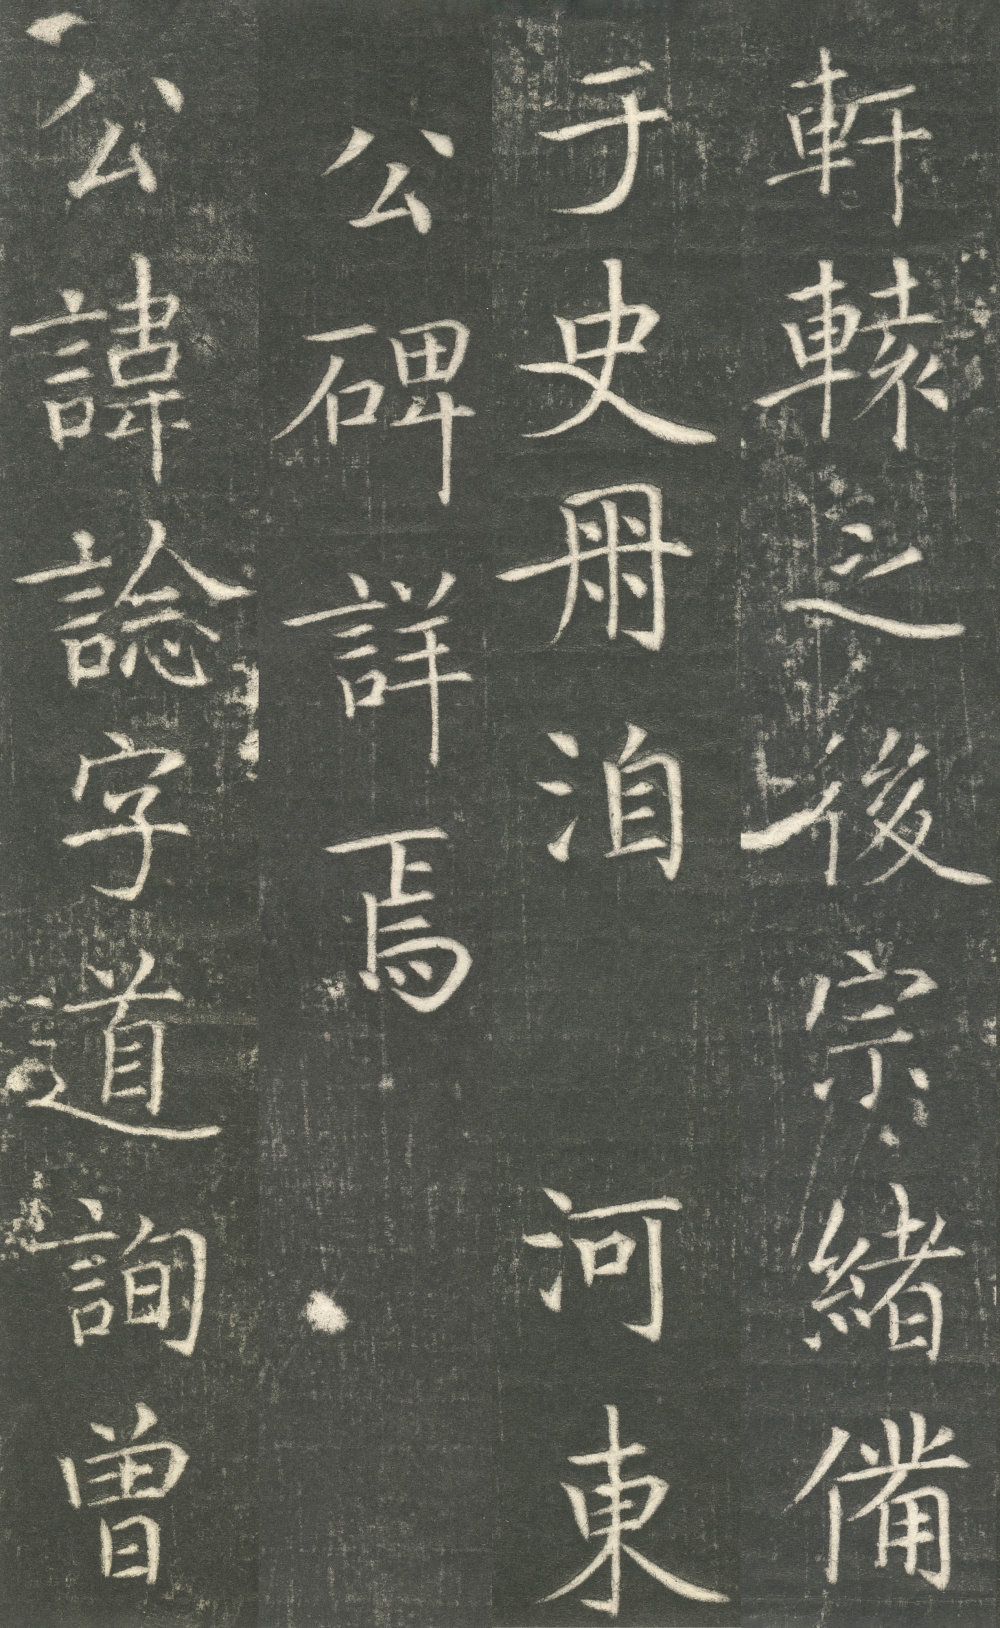 軒轅之後宗緒備
于史冊洎河東
公碑詳焉
公諱諗字道詢曽